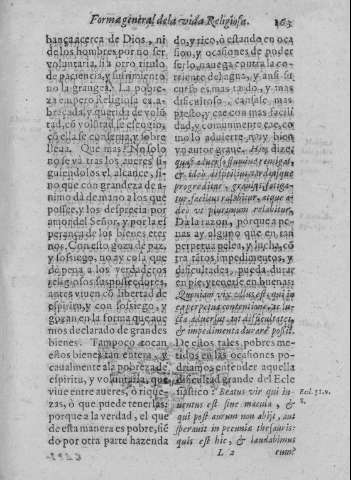 Forma general de la vida Religiosa. 163
bança acerca de Dios, ni
de los hombres, por no ser
voluntaria, ni a otro titulo
de paciencia, y sufrimiento
no la grangea. La pobre-
za empero Religiosa es a-
braçada, y querida de volũ
tad, cõ volũtad se escogio,
cõ ella se conserua, y sobre
lleua. Que mas? No solo
no se va tras los aueres si-
guiendolos el alcance, si-
no que con grandeza de a-
nimo dà de mano a los que
possee, y los desprecia por
amor del Señor, y por la es
perança de los bienes eter
nos. Con esto goza de paz,
y sosiego, no ay cosa que
dè pena a los verdaderos
religiosos sus posseedores,
antes viuen cõ libertad de
espiritu, y con sosiego, y
gozan en la forma que aue
mos declarado de grandes
bienes. Tampoco tocan
estos bienes tan entera, y
caualmente a la pobreza de
espiritu, y voluntaria, que
viue entre aueres, ò rique-
zas, ò que puede tenerlas:
porque a la verdad, el que
de esta manera es pobre, siẽ
do por otra parte hazenda
do, y rico, ò estando en oca
sion, y ocasiones de poder
serlo, nauega contra la co-
rriente del agua, y ansi su
curso es mas tardo, y mas
dificultoso, cansase mas
presto, y cae con mas facili
dad, y comunmente cae, co
mo lo aduierte muy bien
vn autor graue. Hin dizet
quasi aduerso flumine remigat,
& ideò difficilius, tardiusque
progreditur, grauius fatiga-
tur, facilius relabitur, atque a-
deò vt plurimum relabitur.
Da la razon, porque a pe-
nas ay alguno que en tan
perpetua pelea, y lucha, cõ
tra tãtos impedimentos, y
dificultades, pueda durar
en pie, y tenerse en buenas:
Quoniam vix vllus est, qui in
ea perpetua contentione, ac lu-
cta aduersus tot difficultates,
& impedimenta durare possit.
De estos tales, pobres me-
tidos en las ocasiones po-
driamos entender aquella
dificultad grande del Ecle
siastico: Beatus vir qui in-
uentus est sine macula, &
qui post aurum non abijt, aut
sperauit in pecuniæ thesauris:
quis est hic, & laudabimus
Eccl. 31. v.
8.
L 2 eum?